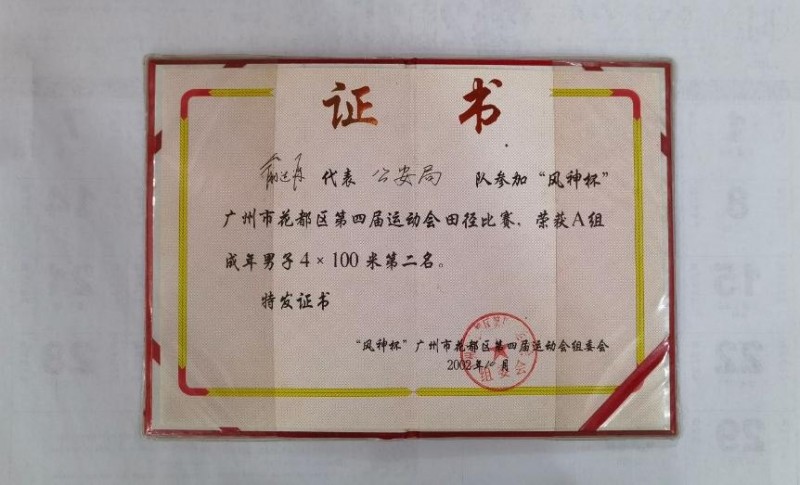 证 书
代表 公安局 队参加“风神杯”
广州市花都区第四届运动会田径比赛，荣获A组
成年男子4×100米第二名。
特发证书
“风神杯”广州市花都区第四届运动会组委会
2002年 月
组委会
8
15
22
29